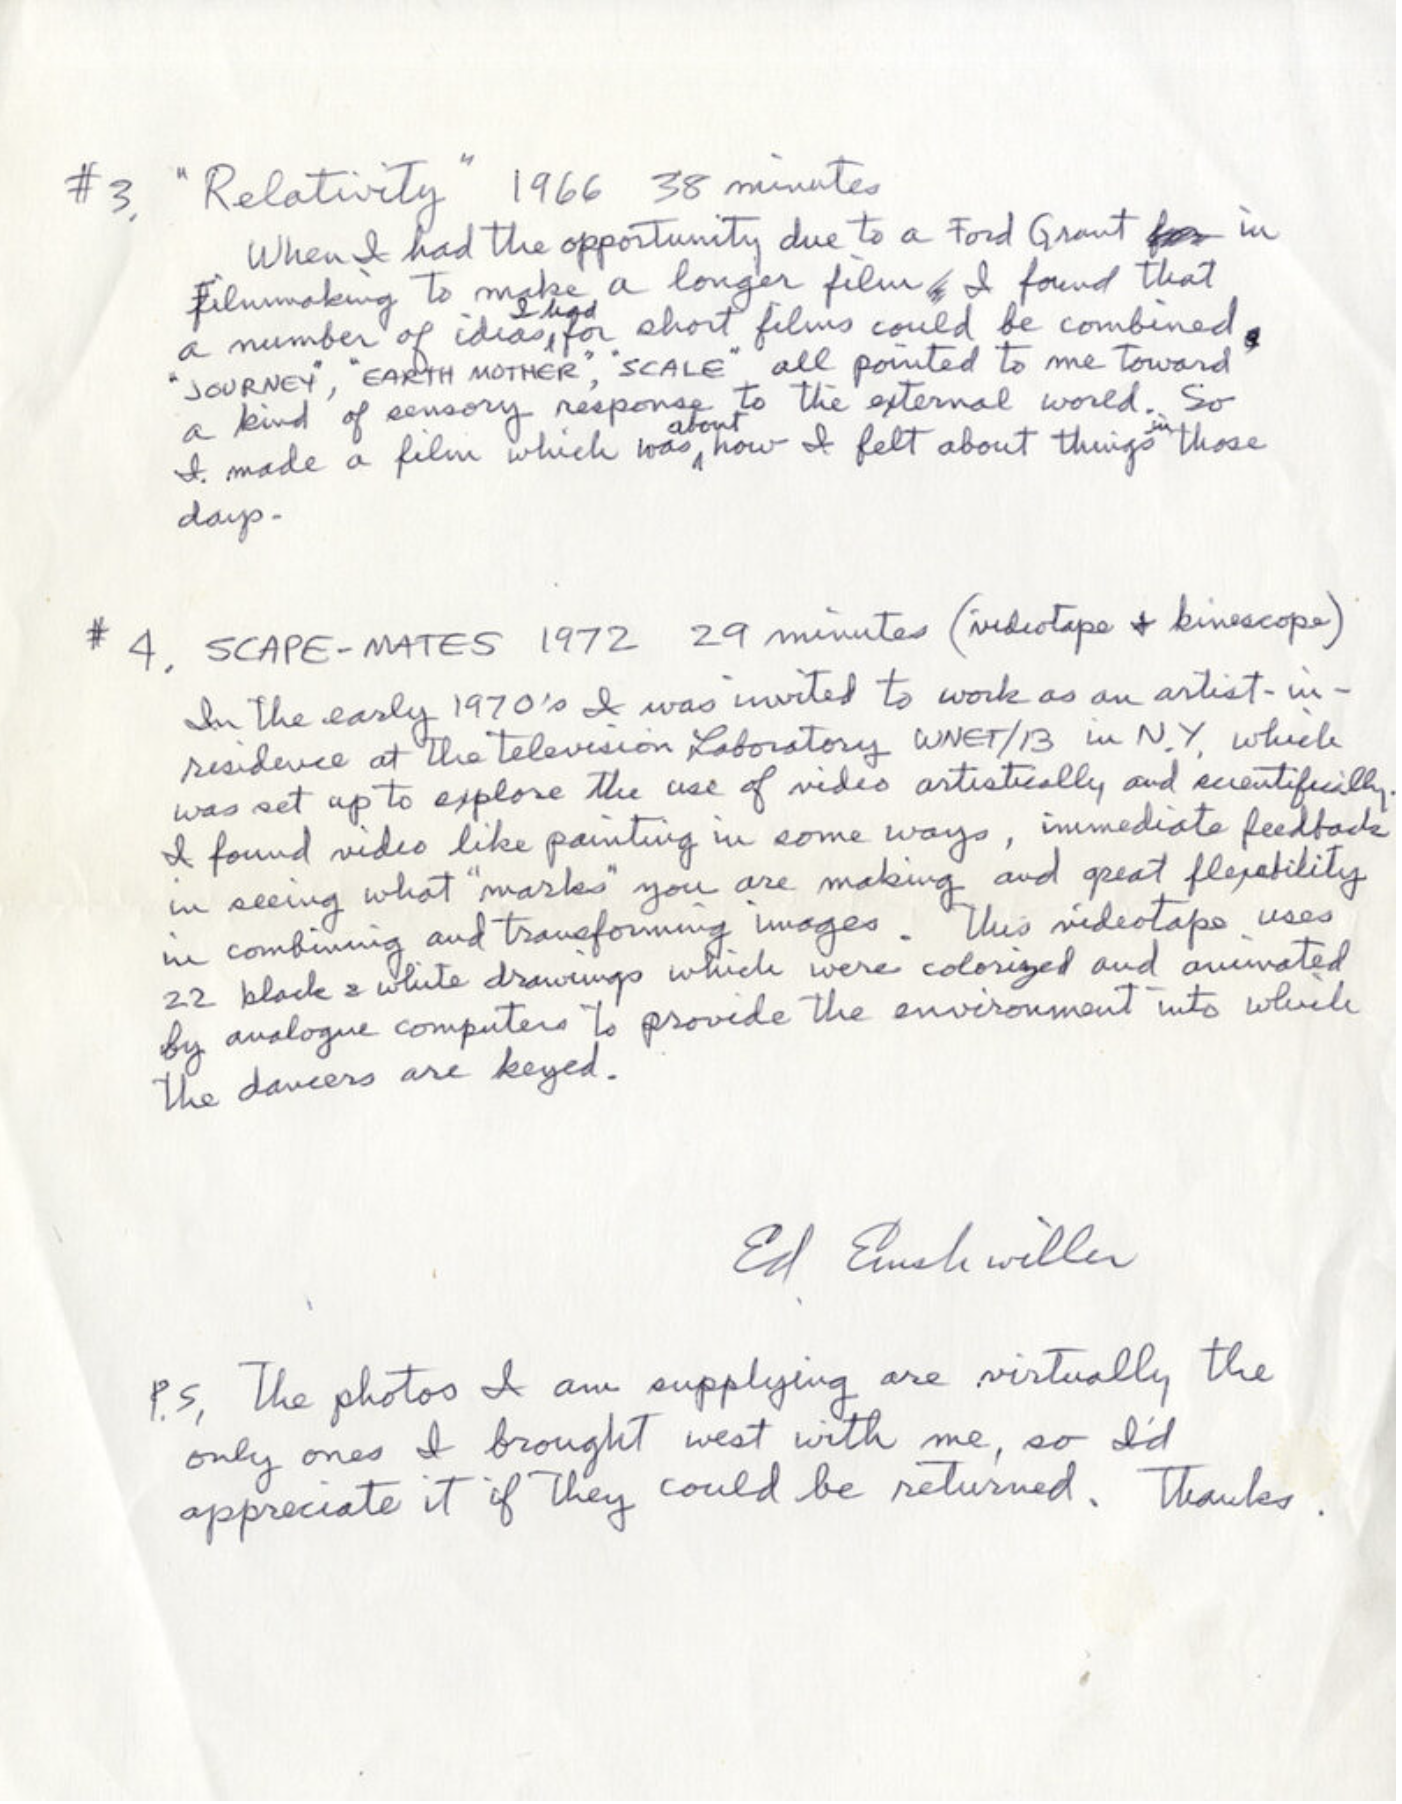 #3. "Relativity" 1966 38 minutes
When I had the opportunity due to a Ford Grant in
Filmmaking to make a longer film, I found that
a number of ideas I had for short films could be combined.
"JOURNEY", "EARTH MOTHER", "SCALE" all pointed to me toward
a kind of sensory response to the external world. So
I made a film which was about how I felt about things in those
days.
#4. SCAPE-MATES 1972 29 minutes (videotape & kinescope)
In the early 1970's I was invited to work as an artist-in-
residence at the Television Laboratory WNET/13 in N.Y. which
was set up to explore the use of video artistically and scientifically.
I found video like painting in some ways, immediate feedback
in seeing what "marks" you are making and great flexibility
in combining and transforming images. This videotape uses
22 black & white drawings which were colorized and animated
by analogue computers to provide the environment into which
the dancers are keyed.
Ed Emshwiller
P.S. The photos I am supplying are virtually the
only ones I brought west with me, so I'd
appreciate it if they could be returned. Thanks.